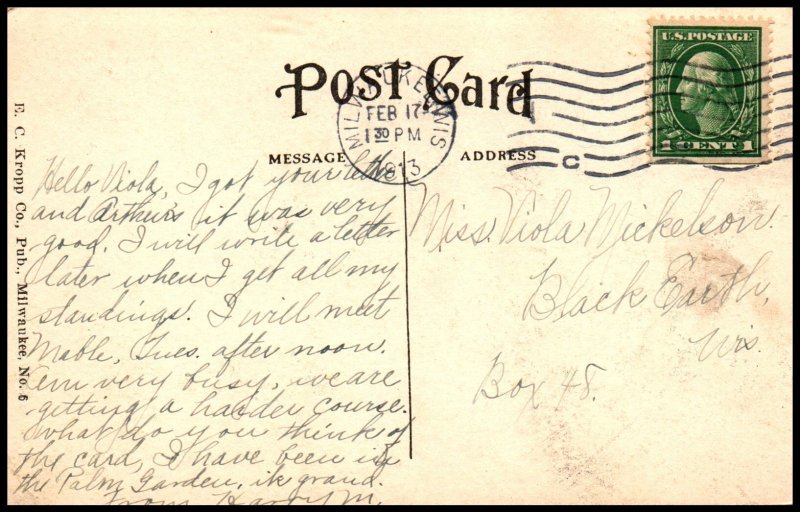 Post Card
MILWAUKEE, WIS
FEB 17
1 30 PM
1913
C
U.S. POSTAGE
1 CENT 1
MESSAGE
ADDRESS
E. C. Kropp Co., Pub., Milwaukee, No. 6
Hello Viola, I got your letter
and Arthur's it was very
good. I will write a letter
later when I get all my
standings. I will meet
Mable, Tues. after noon.
em very busy, we are
getting a harder course.
what do you think of
the card, I have been in
the Palm Garden, it grand.
From Harry M.
Miss. Viola Mickelson.
Black Earth,
Wis.
Box 48.